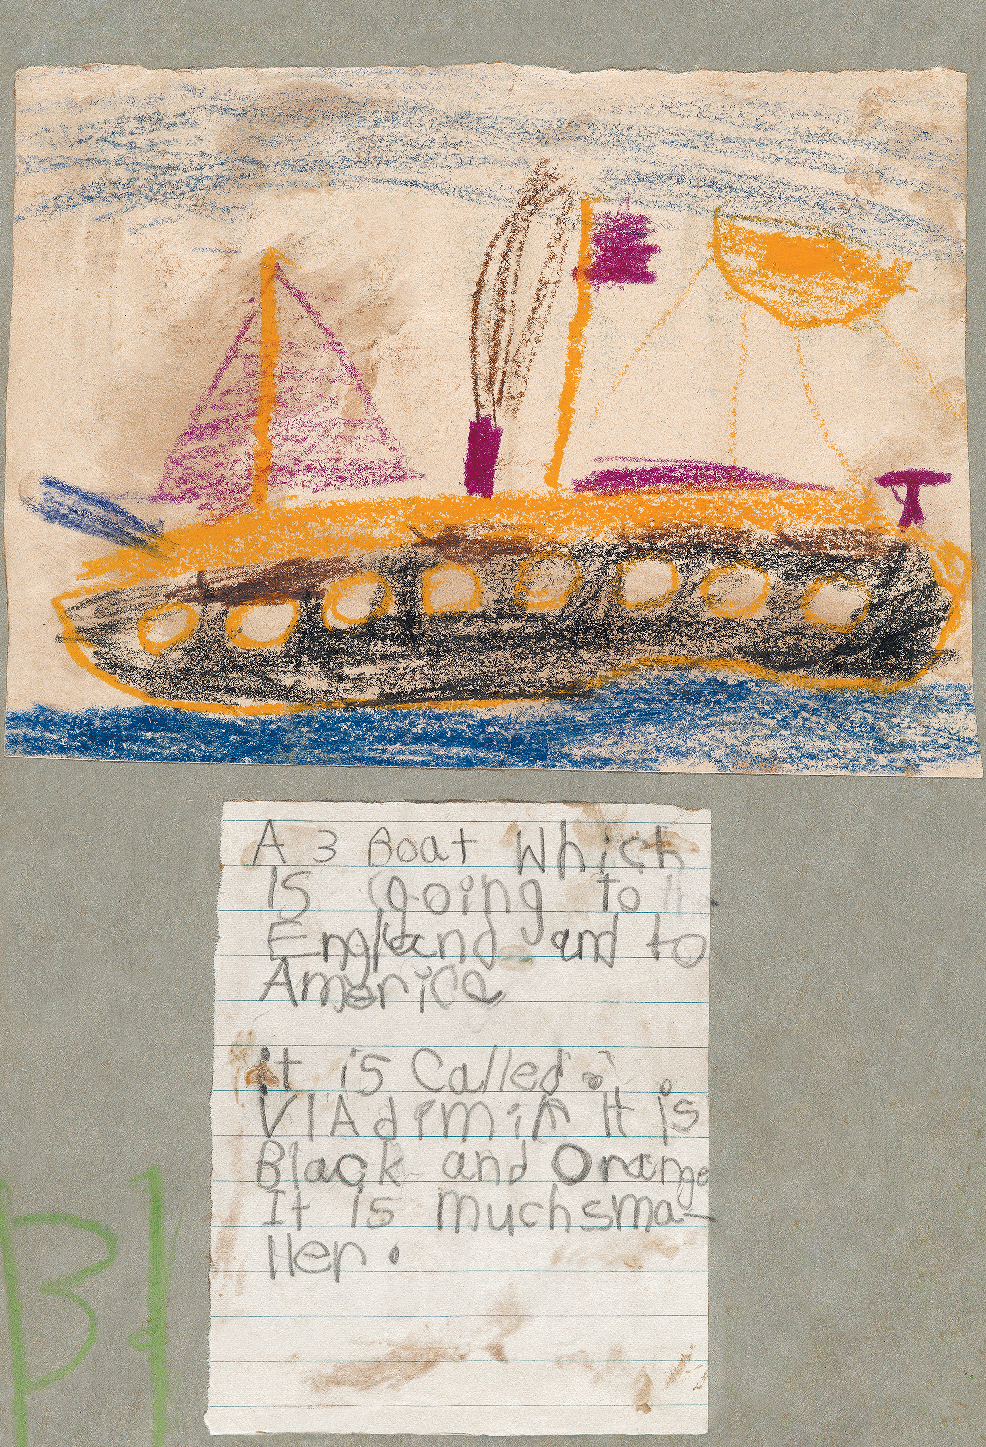 A 3 Boat Which
IS going to
England and to
America
it is Called
VlAdimir It is
Black and Orange
It is muchsma-
ller.
B